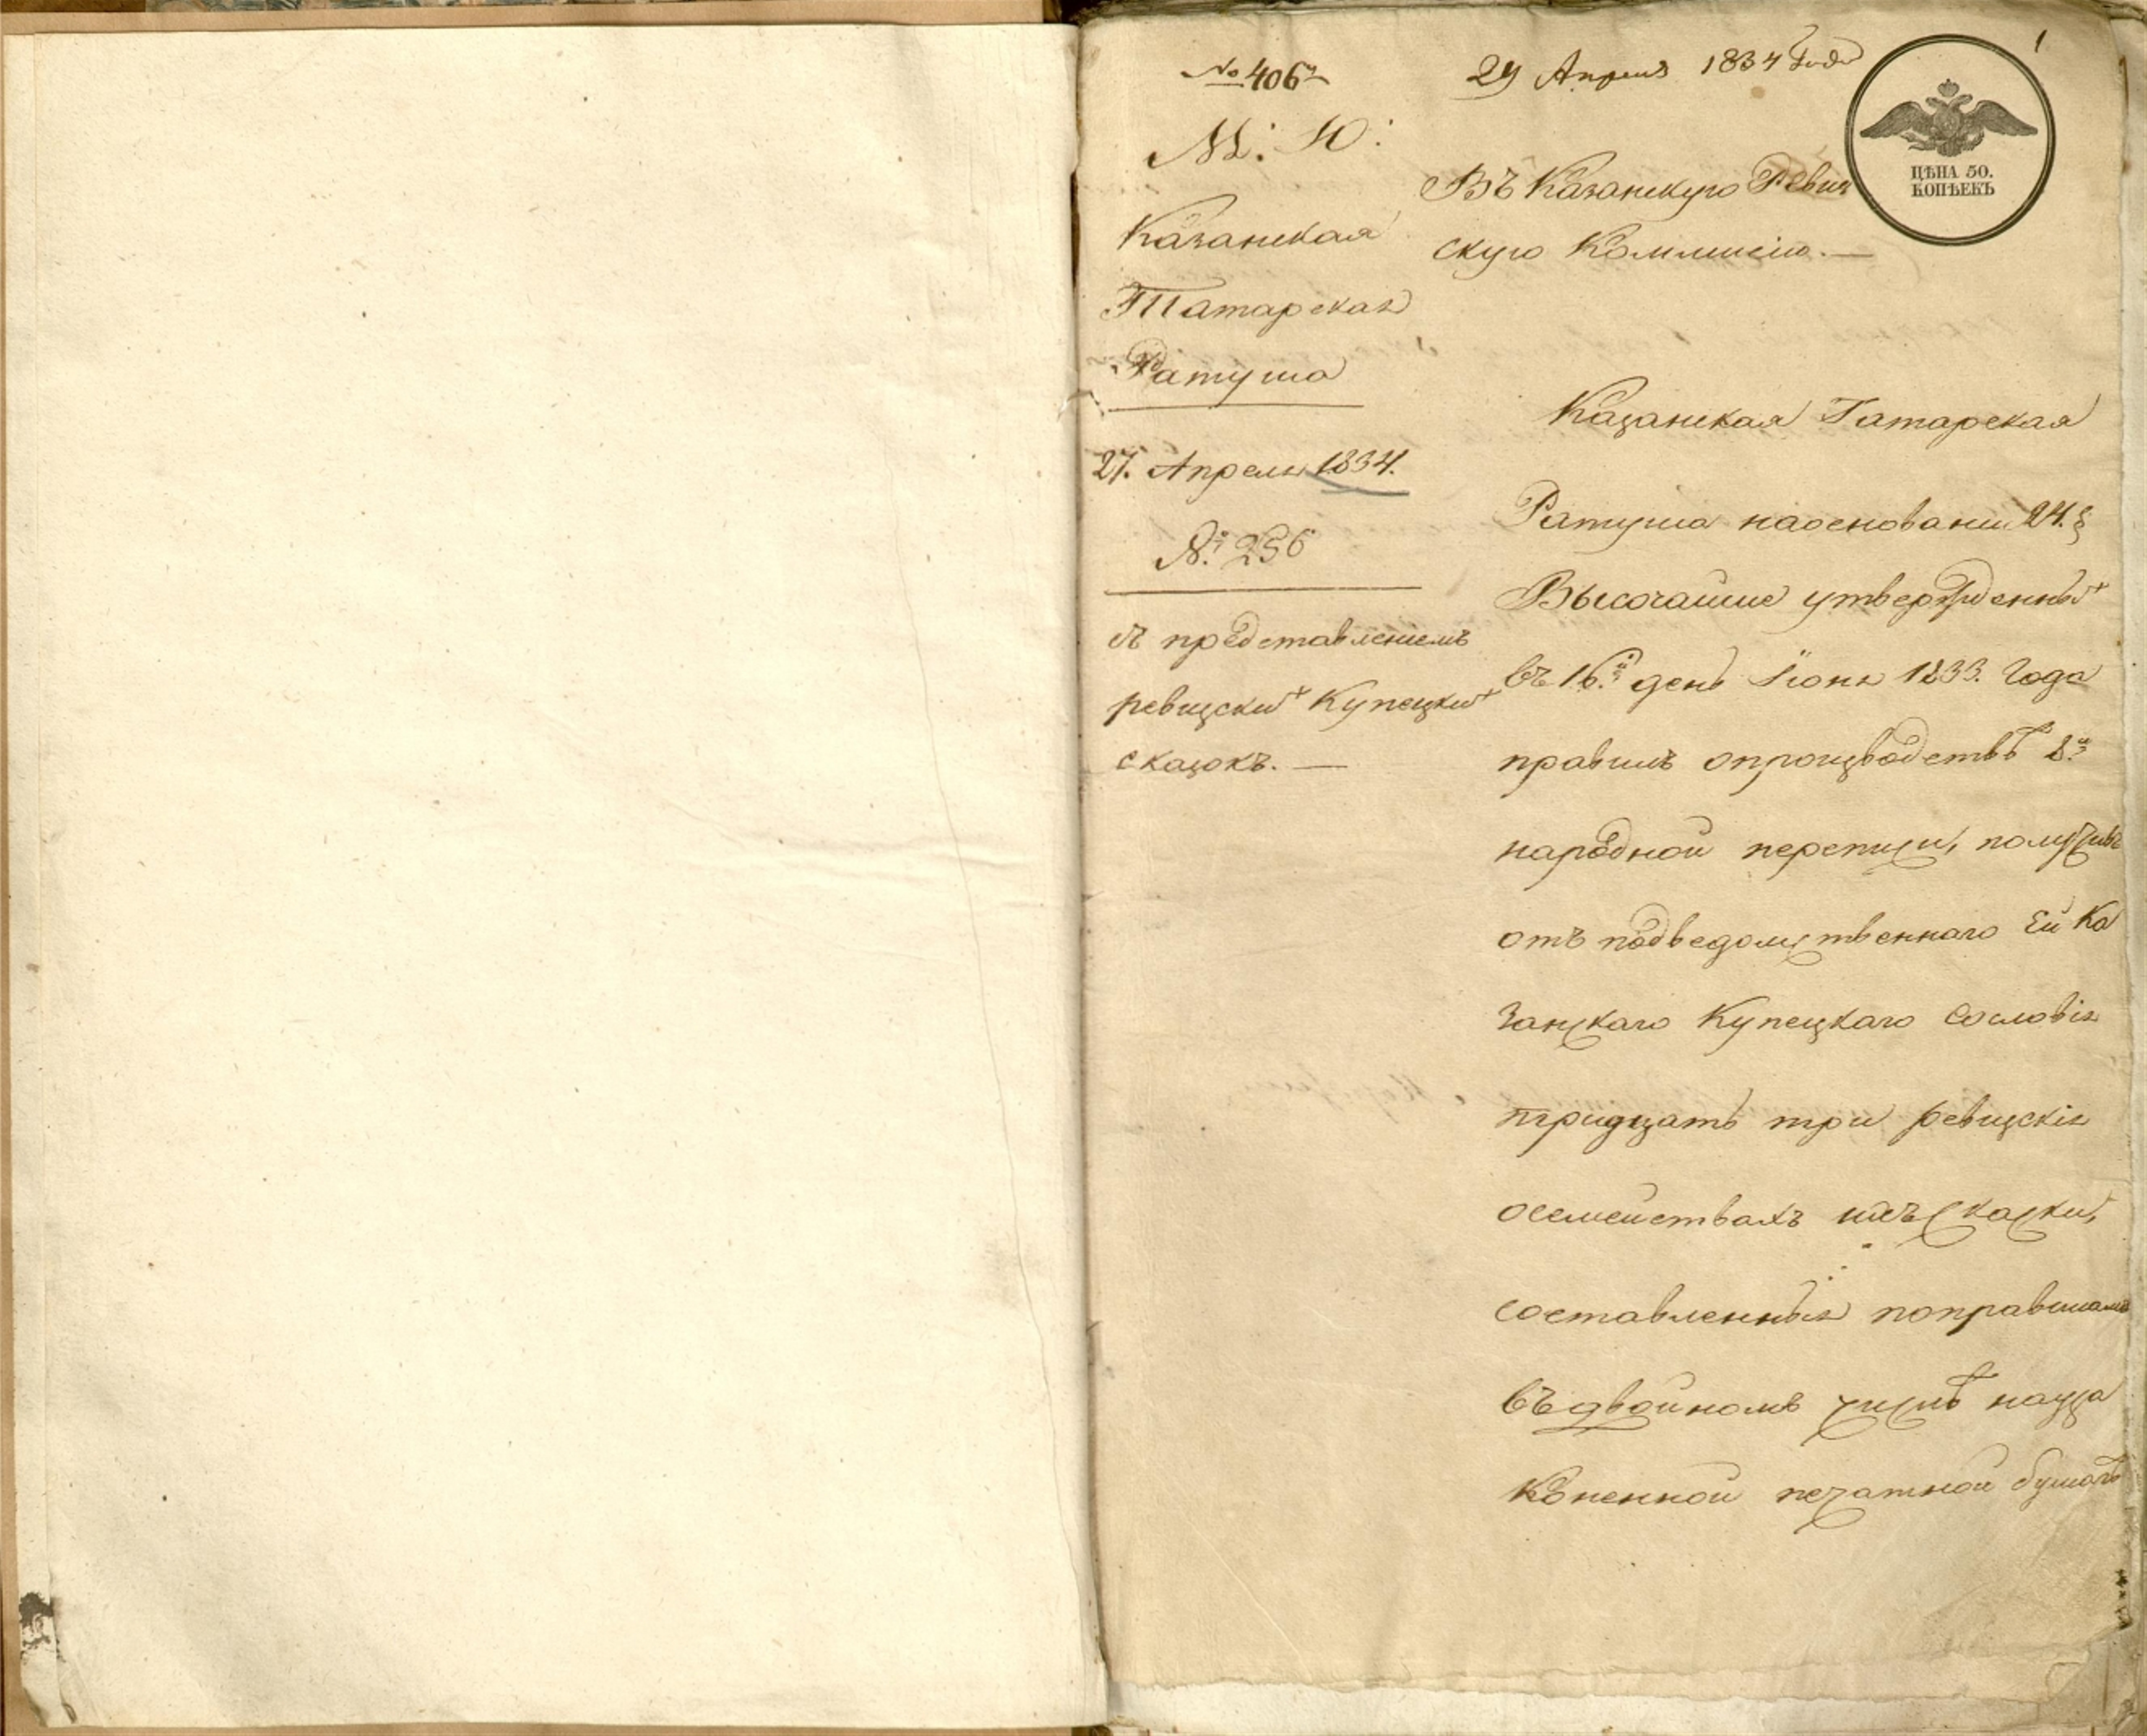 1
№ 406й
29 Апреля 1834 Года
ЦѢНА 50.
КОПѢЕКЪ
М: Ю:
Казанская
Татарская
Ратуша
27. Апреля 1834.
№ 256
съ представленіемъ
ревизскихъ Купецкихъ
сказокъ. —
Въ Казанскую Ревиз
скую Коммисію. —
Казанская Татарская
Ратуша наосновании 24. §
Высочайше утвержденныхъ
въ 16й день Іюня 1833. Года
правилъ опроизводствѣ 8й
народной переписи, получивъ
отъ подведомственнаго Ей Ка
занскаго Купецкаго Сословія
тридцать три ревизскія
осемействахъ ихъ сказки,
составленныя поправиламъ
въдвойномъ числѣ науза
коненной печатной бумагѣ